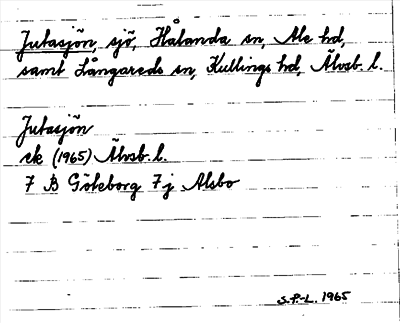 Jutasjön, sjö, Hålanda sn, Ale hd,
samt Långareds sn, Kullings hd, Älvsb. l.
Jutasjön
ek (1965) Älvsb. l.
7 B Göteborg 7j Alsbo
S.P.-L. 1965